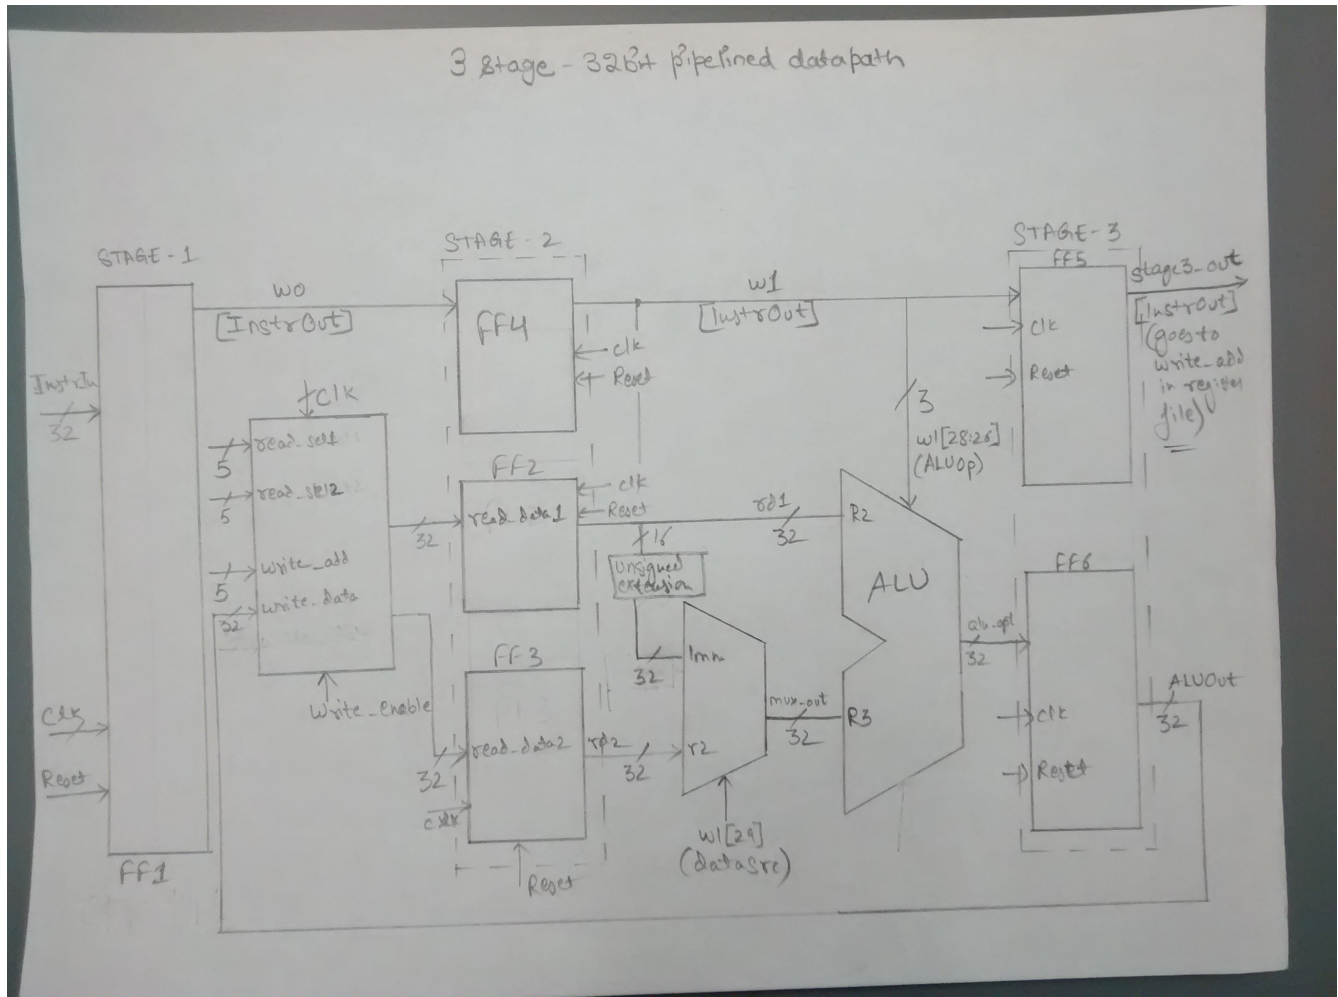 3 Stage - 32bit pipelined datapath
STAGE - 1
InstrIn
32
Clk
Reset
FF1
w0
[InstrOut]
Clk
read_sel1
5
read_sel2
5
write_add
5
write_data
32
Write_enable
32
32
STAGE - 2
FF4
clk
Reset
FF2
read_data1
clk
Reset
FF3
read_data2
clk
Reset
w1
[InstrOut]
16
unsigned
extension
32
Imm
rd2
32
r2
w1[29]
(datasrc)
mux-out
32
rd1
32
3
w1[28:26]
(ALUop)
R2
ALU
R3
alu-opt
32
STAGE - 3
FF5
Clk
Reset
Stage3_out
[InstrOut]
(goes to
write_add
in register
file)
FF6
clk
Reset
ALUOut
32